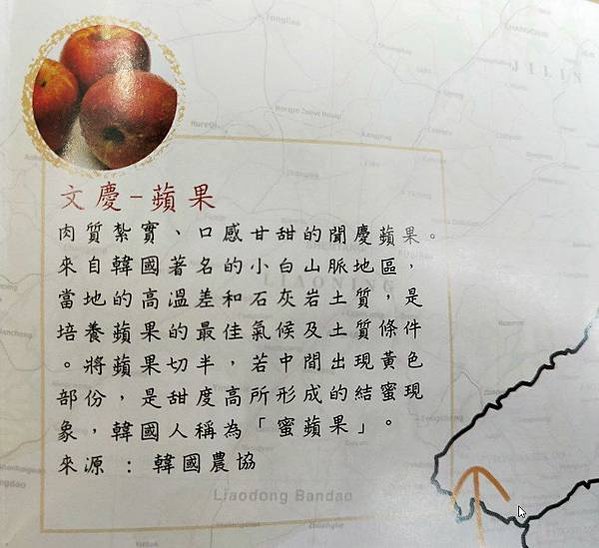 文慶-蘋果
肉質紮實、口感甘甜的聞慶蘋果。
來自韓國著名的小白山脈地區,
當地的高溫差和石灰岩土質,是
培養蘋果的最佳氣候及土質條件
。將蘋果切半,若中間出現黃色
部份,是甜度高所形成的結蜜現
象,韓國人稱為「蜜蘋果」。
來源:韓國農協
Liaodong Bandao